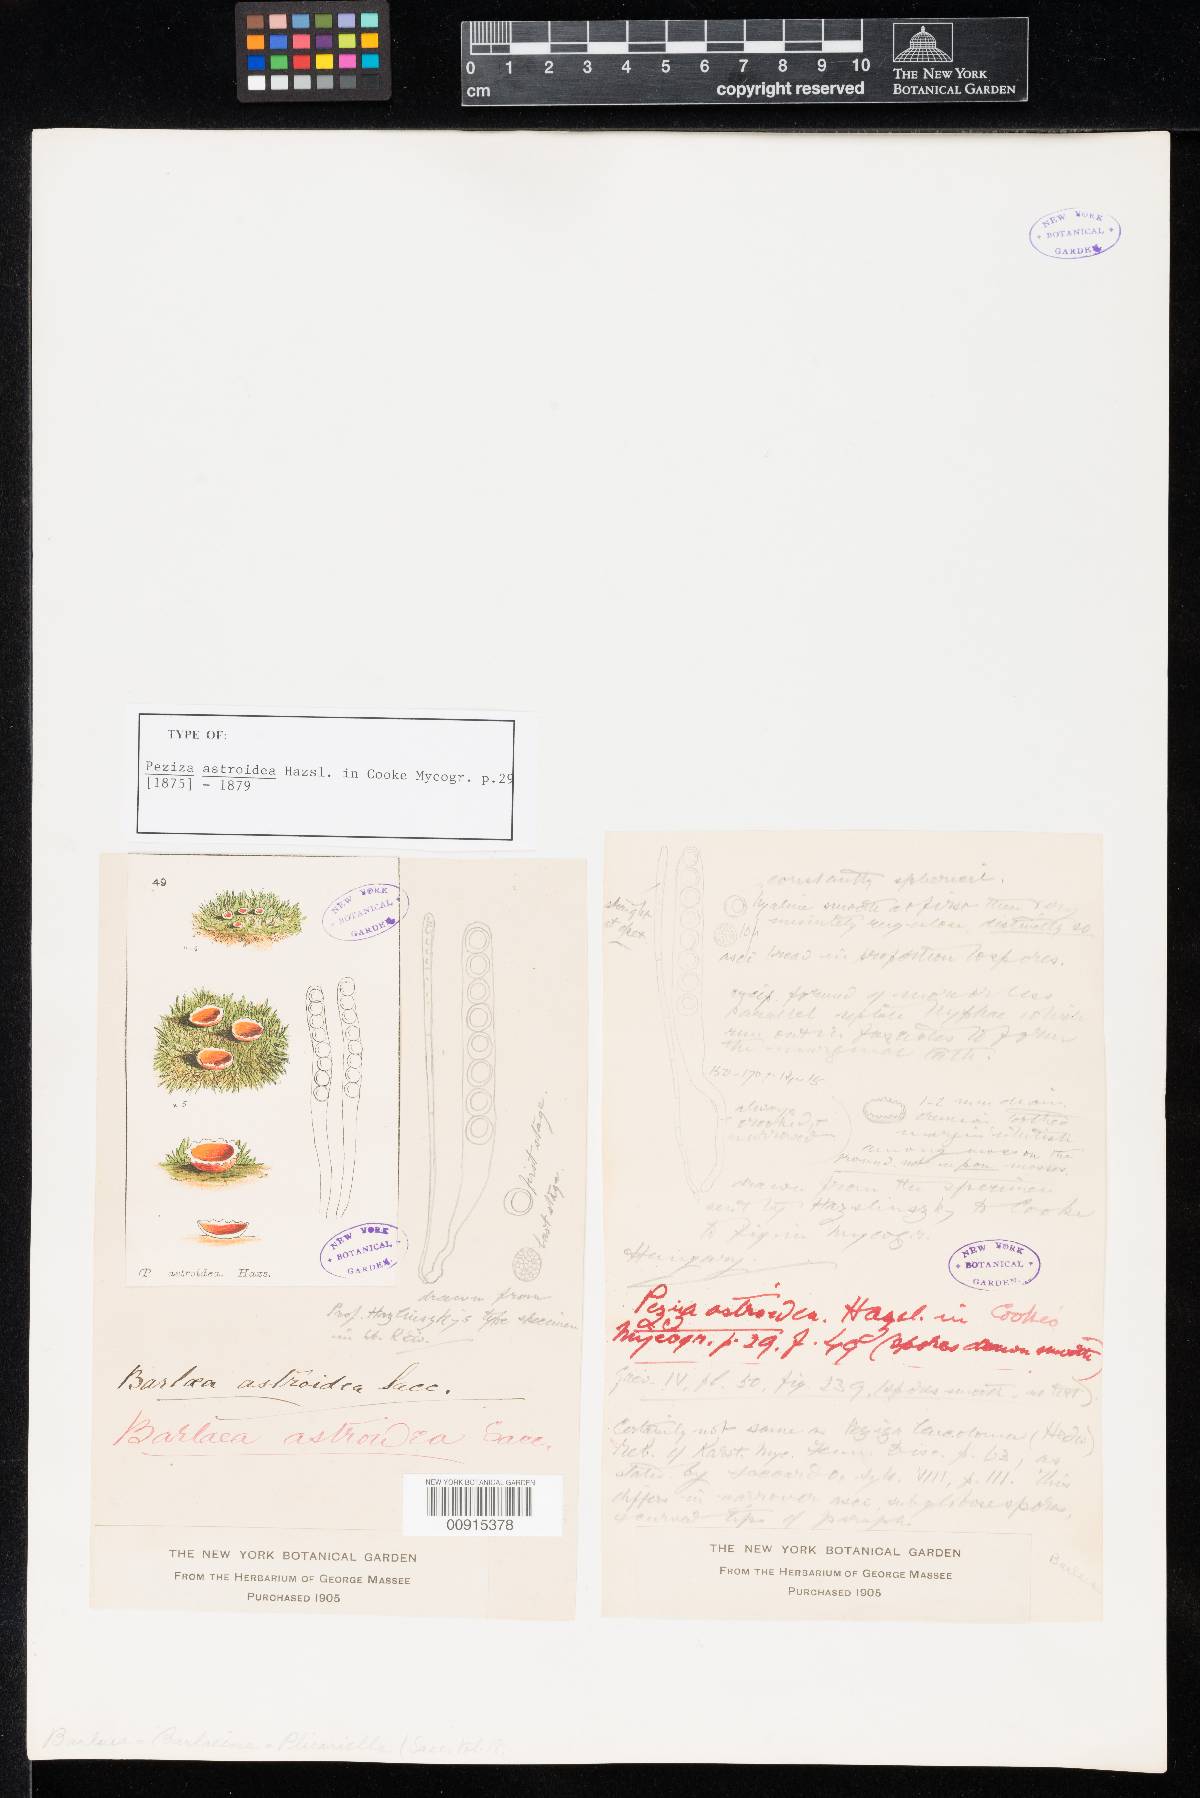 0 1 2 3 4 5 6 7 8 9 10
cm
copyright reserved
THE NEW YORK
BOTANICAL GARDEN
NEW YORK
BOTANICAL
GARDEN
TYPE OF:
Peziza astroidea Hazsl. in Cooke Mycogr. p.29
[1875] - 1879
49
NEW YORK
BOTANICAL
GARDEN
× 5
NEW YORK
BOTANICAL
GARDEN
P. astroidea. Hazs.
first stage.
last stage.
drawn from
Prof. Hazslinszky's type specimen
in
Barlæa astroidea Sacc.
Barlaea astroidea Sacc.
NEW YORK BOTANICAL GARDEN
00915378
THE NEW YORK BOTANICAL GARDEN
FROM THE HERBARIUM OF GEORGE MASSEE
PURCHASED 1905
constantly spherical.
hyaline smooth at first then
minutely rugulose, distinctly so
10µ
asci broad in proportion to spores.
formed of more or less
parallel septate hyphae which
run out in fascicles to form
the marginal teeth.
150-170 × 12-15
always
crooked &
narrowed
1-2 mm diam.
margin whitish
among moss on the
ground not upon mosses.
drawn from the specimen
sent by Hazslinszky to Cooke
to figure Mycogr.
Hungary
NEW YORK
BOTANICAL
GARDEN
Peziza astroidea. Hazsl. in Cooke's
Mycogr. p. 29. f. 49 (spores drawn smooth)
Grev. IV, pl. 50, fig. 239, (spores smooth in text).
Certainly not same as Peziza leucoloma (Hedw)
Reb. of Karst. Myc. Fenn. p. 63, as
stated by Saccardo, Syll. VIII, p. 111. This
differs in narrower asci, subglobose spores,
& curved tips of paraph.
THE NEW YORK BOTANICAL GARDEN
FROM THE HERBARIUM OF GEORGE MASSEE
PURCHASED 1905
Barlaea
Barlaea = Barlaeina = Plicariella (Sacc. Vol.